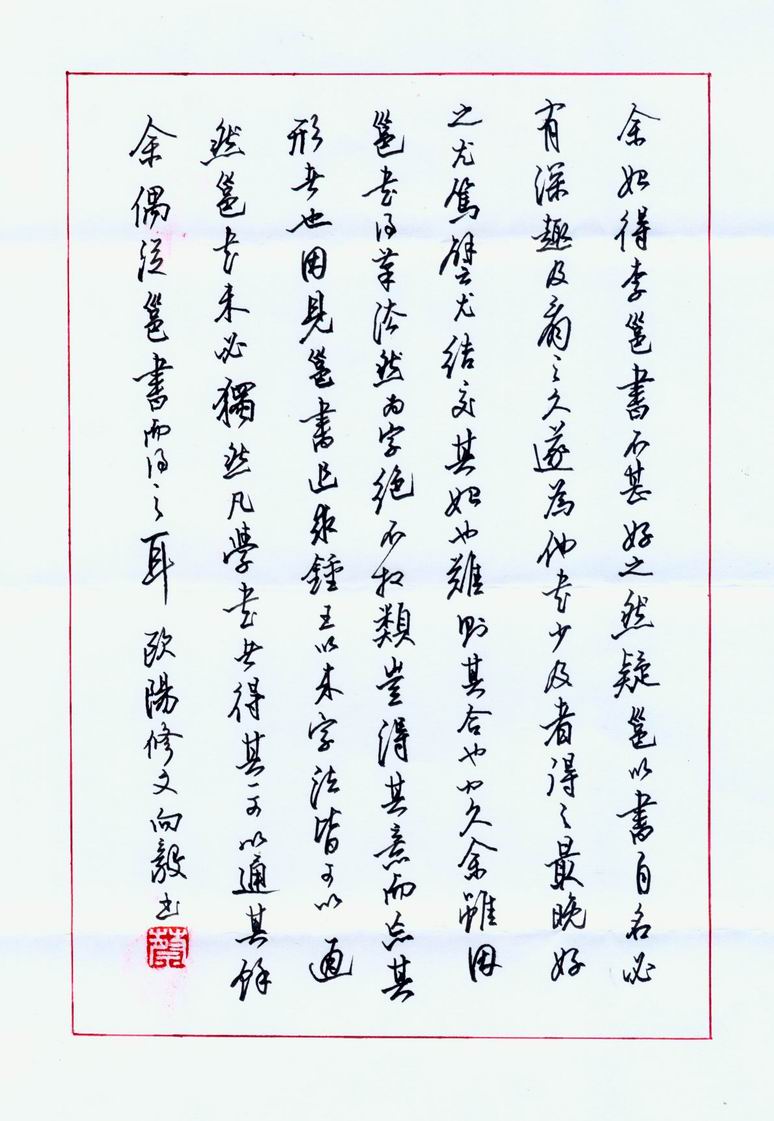 余始得李邕書不甚好之然疑邕以書自名必
有深趣及看之久遂為他书少及者得之最晚好
之尤篤譬尤结交其始也難則其合也必久余雖因
邕书得筆法然为字绝不相類豈得其意而忘其
形者也因見邕書追求鍾王以来字法皆可以通
然邕书未必獨然凡學书者得其一可以通其餘
余偶從邕書而得之耳 欧陽修文向毅书